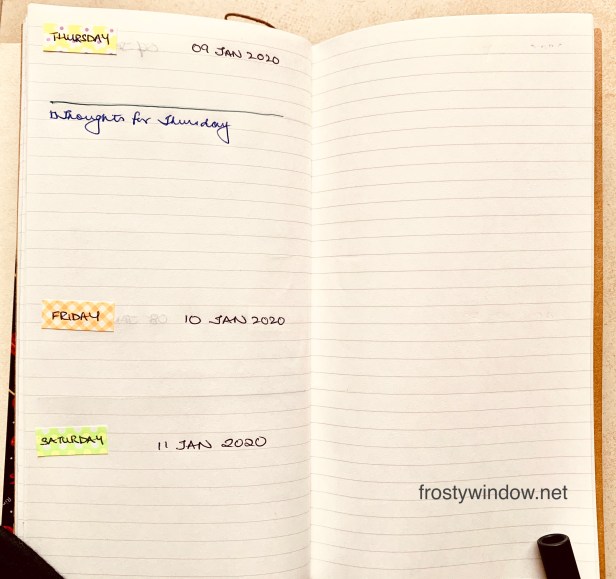 THURSDAY 09 JAN 2020
Thoughts for Thursday
FRIDAY 10 JAN 2020
SATURDAY 11 JAN 2020
frostywindow.net